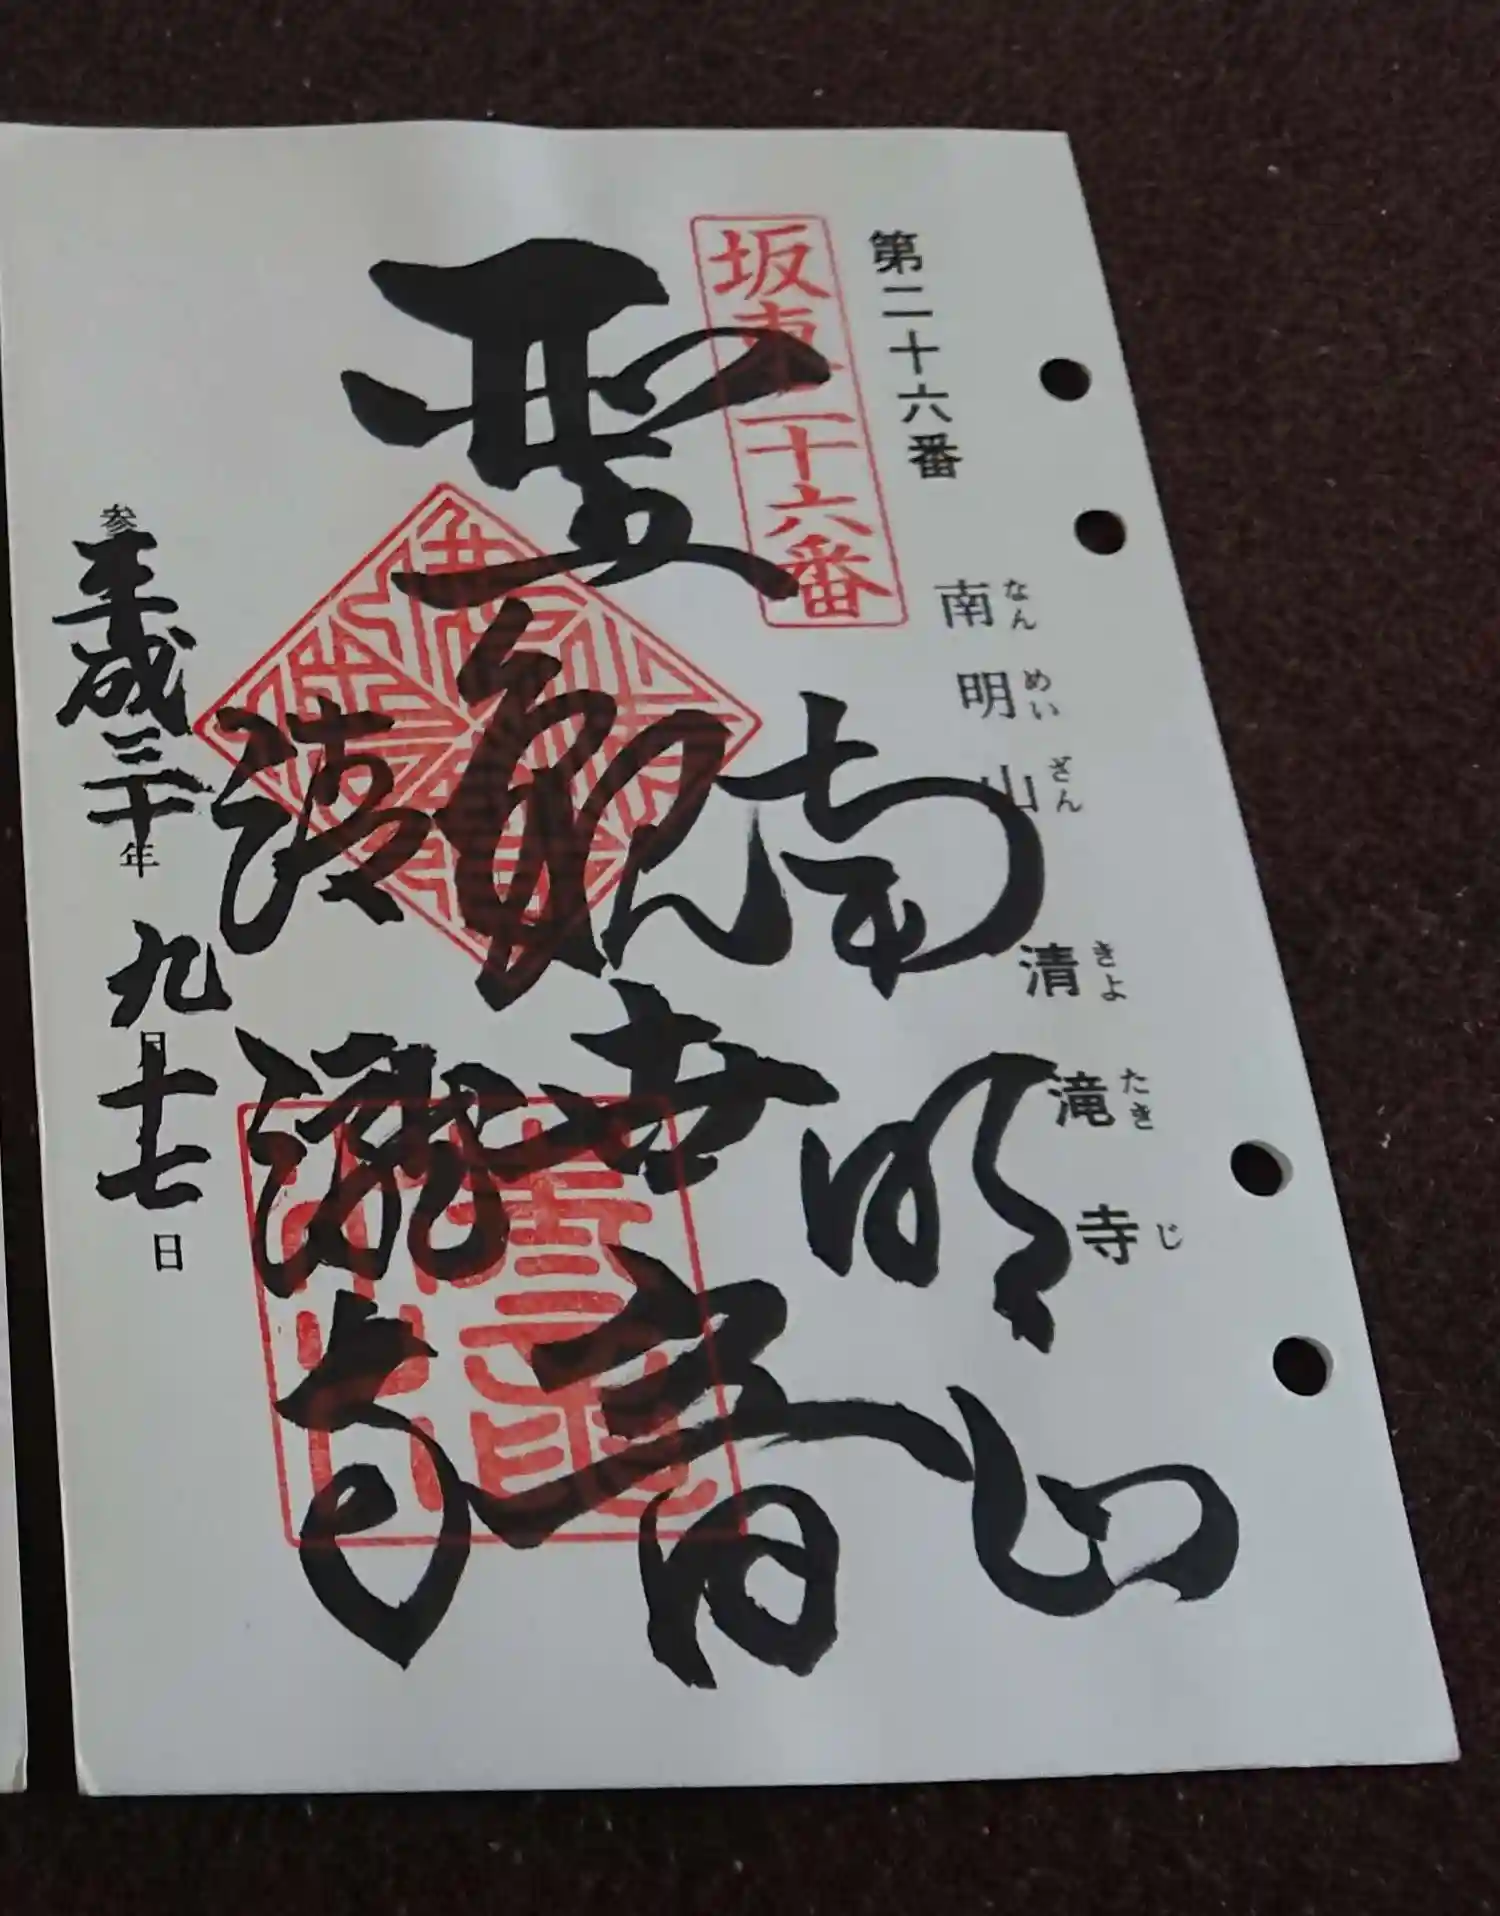 第二十六番
南明山 清滝寺
なんめいざん きよたきじ
坂東二十六番
南明山
聖観世音
清瀧寺
参平成三十年九月十七日